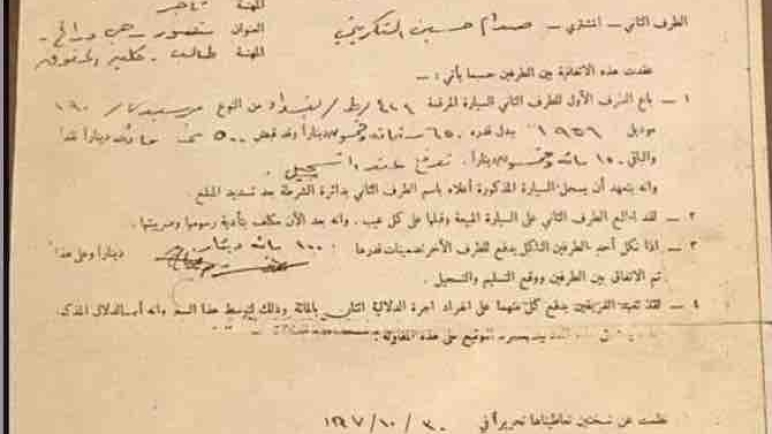 المهنة تاجر
الطرف الثاني - المشتري - صدام حسين التكريتي العنوان
المهنة طالب - كلية الحقوق
عقدت هذه الاتفاقية بين الطرفين حسبما يأتي : -
١ - باع الطرف الأول للطرف الثاني السيارة المرقمة بغداد من النوع مرسيدس ١٩٠
موديل ١٩٥٦ بدل قدره ٦٥٠ ستمائة وخمسون ديناراً وقد قبض ٥٠٠ نقداً
والباقي ١٥٠ مائة وخمسون ديناراً تدفع عند التسجيل .
وانه يتعهد أن يسجل السيارة المذكورة أعلاه باسم الطرف الثاني بدائرة الشرطة عند تسديد المبلغ .
٢ - لقد اطلع الطرف الثاني على السيارة المبيعة وقبلها على كل عيب . وانه بعد الآن مكلف بتأدية رسومها وضريبتها .
٣ - اذا نكل أحد الطرفين الناكل يدفع للطرف الآخر تضمينات قدرها ١٠٠ مائة دينار ديناراً وعلى هذا
تم الاتفاق بين الطرفين ووقع التسليم والتسجيل .
٤ - لقد تعهد الفريقين بدفع كل منهما على انفراد اجرة الدلالية اثنان بالمائة وذلك لتوسط هذا
التوقيع على هذه المقاولة .
نظمت عن نسختين تعاطيناها تحريراً في ٣٠ / ١٠ /